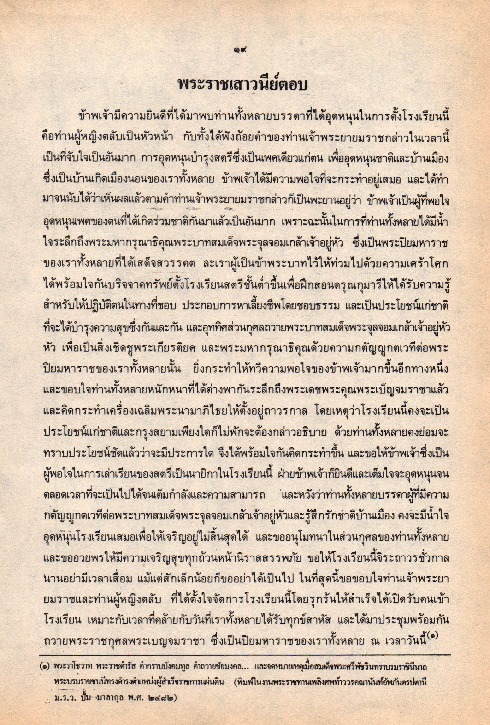 ๑๙
พระราชเสาวนีย์ตอบ
ข้าพเจ้ามีความยินดีที่ได้มาพบท่านทั้งหลายบรรดาที่ได้อุดหนุนในการตั้งโรงเรียนนี้
คือท่านผู้หญิงตลับเป็นหัวหน้า กับทั้งได้ฟังถ้อยคำของท่านเจ้าพระยายมราชกล่าวในเวลานี้
เป็นที่จับใจเป็นอันมาก การอุดหนุนบำรุงสตรีซึ่งเป็นเพศเดียวแก่ตน เพื่ออุดหนุนชาติและบ้านเมือง
ซึ่งเป็นบ้านเกิดเมืองนอนของเราทั้งหลาย ข้าพเจ้าได้มีความพอใจที่จะกระทำอยู่เสมอ และได้ทำ
มาจนนับได้ว่าเห็นผลแล้วตามคำท่านเจ้าพระยายมราชกล่าวก็เป็นพะยานอยู่ว่า ข้าพเจ้าเป็นผู้ที่พอใจ
อุดหนุนเพศของตนที่ได้เกิดร่วมชาติกันมาแล้วเป็นอันมาก เพราะฉะนั้นในการที่ท่านทั้งหลายได้มีน้ำ
ใจระลึกถึงพระมหากรุณาธิคุณพระบาทสมเด็จพระจุลจอมเกล้าเจ้าอยู่หัว ซึ่งเป็นพระปิยมหาราช
ของเราทั้งหลายที่ได้เสด็จสวรรคต ละเราผู้เป็นข้าพระบาทไว้ให้ท่วมไปด้วยความเศร้าโศก
ได้พร้อมใจกันบริจจาคทรัพย์ตั้งโรงเรียนสตรีชั้นต่ำขึ้นเพื่อฝึกสอนดรุณกุมารีให้ได้รับความรู้
สำหรับให้ปฏิบัติตนในทางที่ชอบ ประกอบการหาเลี้ยงชีพโดยชอบธรรม และเป็นประโยชน์แก่ชาติ
ที่จะได้บำรุงความสุขซึ่งกันและกัน และอุททิศส่วนกุศลถวายพระบาทสมเด็จพระจุลจอมเกล้าเจ้าอยู่หัว
หัว เพื่อเป็นสิ่งเชิดชูพระเกียรติยศ และพระมหากรุณาธิคุณด้วยความกตัญญูกตเวทีต่อพระ
ปิยมหาราชของเราทั้งหลายนั้น ยิ่งกระทำให้ทวีความพอใจของข้าพเจ้ามากขึ้นอีกทางหนึ่ง
และขอบใจท่านทั้งหลายหนักหนาที่ได้ต่างพากันระลึกถึงพระเดชพระคุณพระเบ็ญจมราชาแล้ว
และคิดกระทำเครื่องเฉลิมพระนามาภิไธยให้ตั้งอยู่ถาวรกาล โดยเหตุว่าโรงเรียนนี้คงจะเป็น
ประโยชน์แก่ชาติและกรุงสยามเพียงใดก็ไม่พักจะต้องกล่าวอธิบาย ด้วยท่านทั้งหลายคงย่อมจะ
ทราบประโยชน์ชัดแล้วว่าจะมีประการใด จึงได้พร้อมใจกันคิดกระทำขึ้น และขอให้ข้าพเจ้าซึ่งเป็น
ผู้พอใจในการเล่าเรียนของสตรีเป็นนายิกาในโรงเรียนนี้ ฝ่ายข้าพเจ้าก็ยินดีและเต็มใจจะอุดหนุนจน
ตลอดเวลาที่จะเป็นไปได้จนเต็มกำลังและความสามารถ และหวังว่าท่านทั้งหลายบรรดาผู้ที่มีความ
กตัญญูกตเวทีต่อพระบาทสมเด็จพระจุลจอมเกล้าเจ้าอยู่หัวและรู้สึกรักชาติบ้านเมือง คงจะมีน้ำใจ
อุดหนุนโรงเรียนเสมอเพื่อให้เจริญอยู่ไม่สิ้นสุดได้ และขออนุโมทนาในส่วนกุศลของท่านทั้งหลาย
และขออวยพรให้มีความเจริญสุขทุกถ้วนหน้านิราสสรรพภัย ขอให้โรงเรียนนี้จิระถาวรชั่วกาล
นานอย่ามีเวลาเสื่อม แม้แต่สักเล็กน้อยก็ขออย่าได้เป็นไป ในที่สุดนี้ขอขอบใจท่านเจ้าพระยา
ยมราชและท่านผู้หญิงตลับ ที่ได้ตั้งใจจัดการโรงเรียนนี้โดยรุกร้นให้สำเร็จได้เปิดรับคนเข้า
โรงเรียน เหมาะกับเวลาที่คล้ายกับวันที่เราทั้งหลายได้รับทุกข์สาหัส และได้มาประชุมพร้อมกัน
ถวายพระราชกุศลพระเบญจมราชา ซึ่งเป็นปิยมหาราชของเราทั้งหลาย ณ เวลาวันนี้(๑)
(๑) พระราโชวาท พระราชดำรัส คำกราบบังคมทูล คำถวายชัยมงคล... และจดหมายเหตุเมื่อสมเด็จพระศรีพัชรินทราบรมราชินีนาถ
พระบรมราชชนนีทรงดำรงตำแหน่งผู้สำเร็จราชการแผ่นดิน (พิมพ์ในงานพระราชทานเพลิงศพท้าววรคณานันท์อัพภันตรปตานี
ม.ร.ว. ปั้ม มาลากุล พ.ศ. ๒๔๘๒)